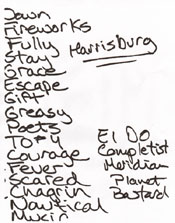 Dawn
Fireworks
Fully
Stay
Grace
Escape
Gift
Greasy
Poets
Courage
Fever
Scared
Chagrin
Nautical
Music
Harrisburg
El Do
Completist
Meridian
Planet
Bastard